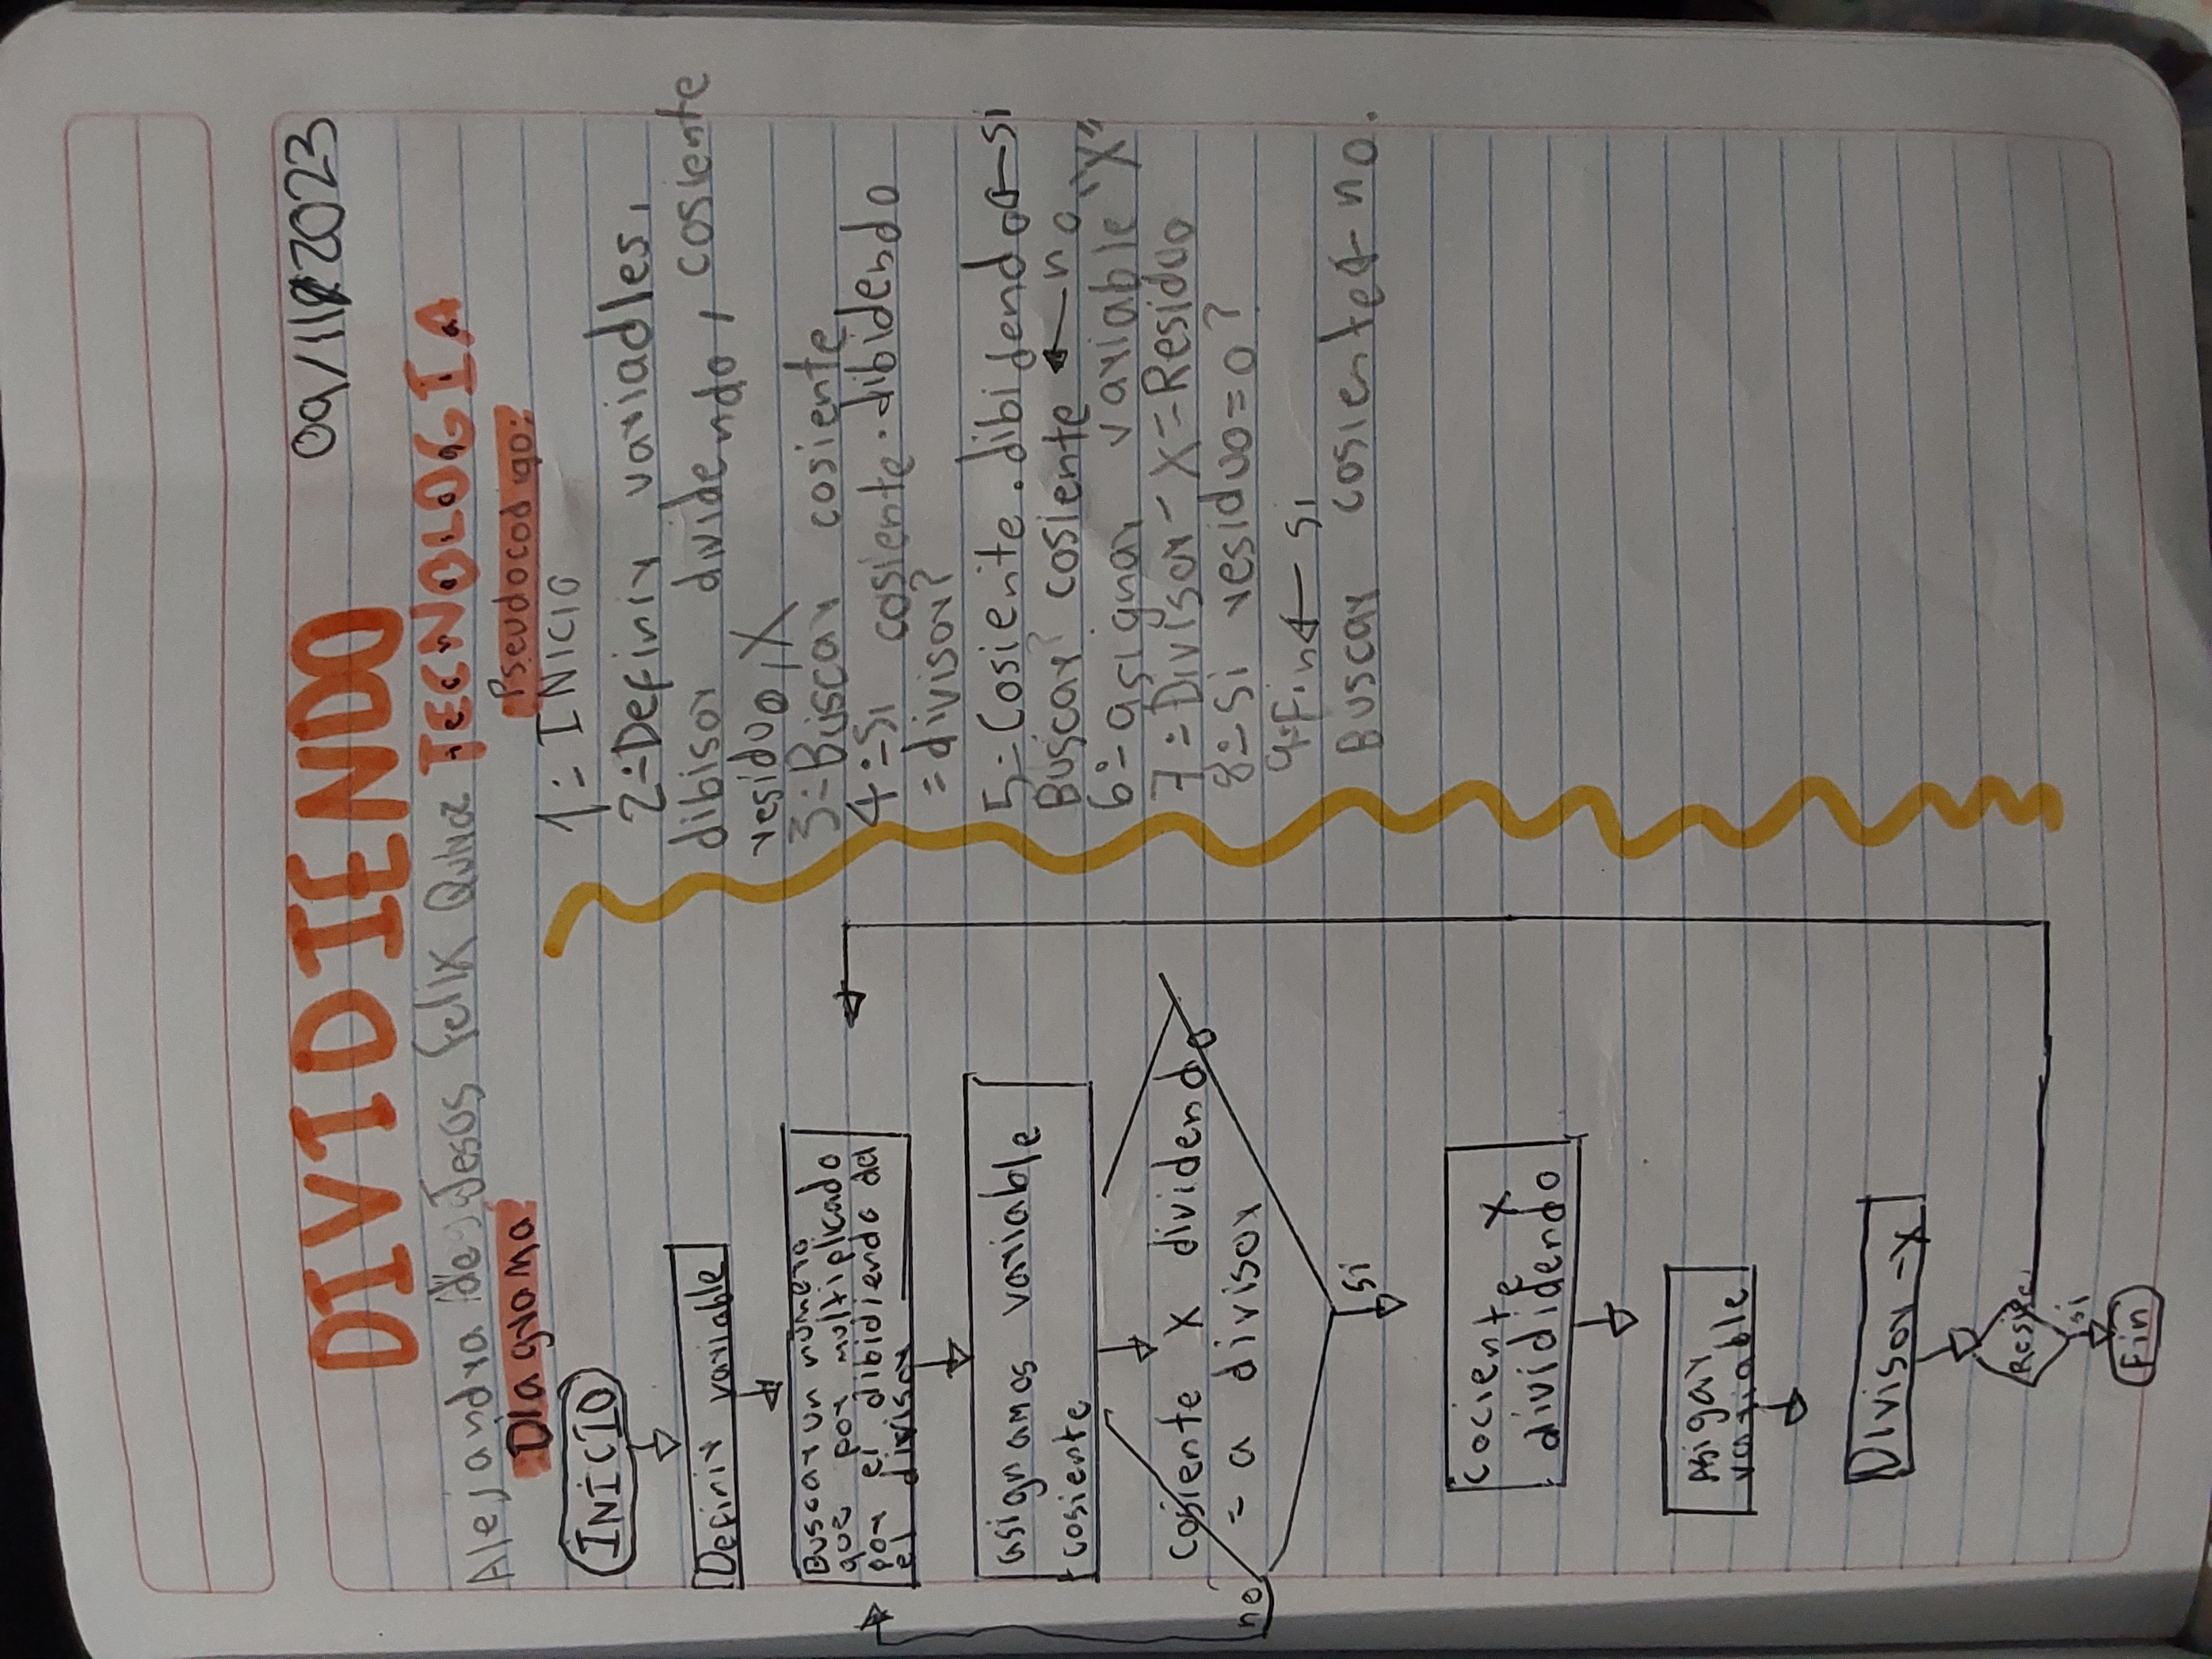 DIVIDIENDO
09/11/2023
Alejandra de Jesus Felix
TECNOLOGIA
Diagrama
INICIO
Definir variable
Buscar un número
que por multiplicado
por el dibidiendo da
el divisor
asignamos variable
cosiente
Cosiente X dividendo
= a divisor
no
si
cociente X
dividiendo
Asigar
variable
Divisor -X
si
Fin
Pseudocodigo:
1:- INICIO
2:-Definir variables,
dibisor dividendo, cosiente
residuo, X
3:-Buscar cosiente
4:-Si cosiente.dibidendo
=divisor?
5:-Cosiente.dibidendo←si
Buscar cosiente ←no
6:-asignar variable "X"
7:-Divisor-X=Residuo
8:-si residuo=0?
9:Fin←si
Buscar cosiente← no.